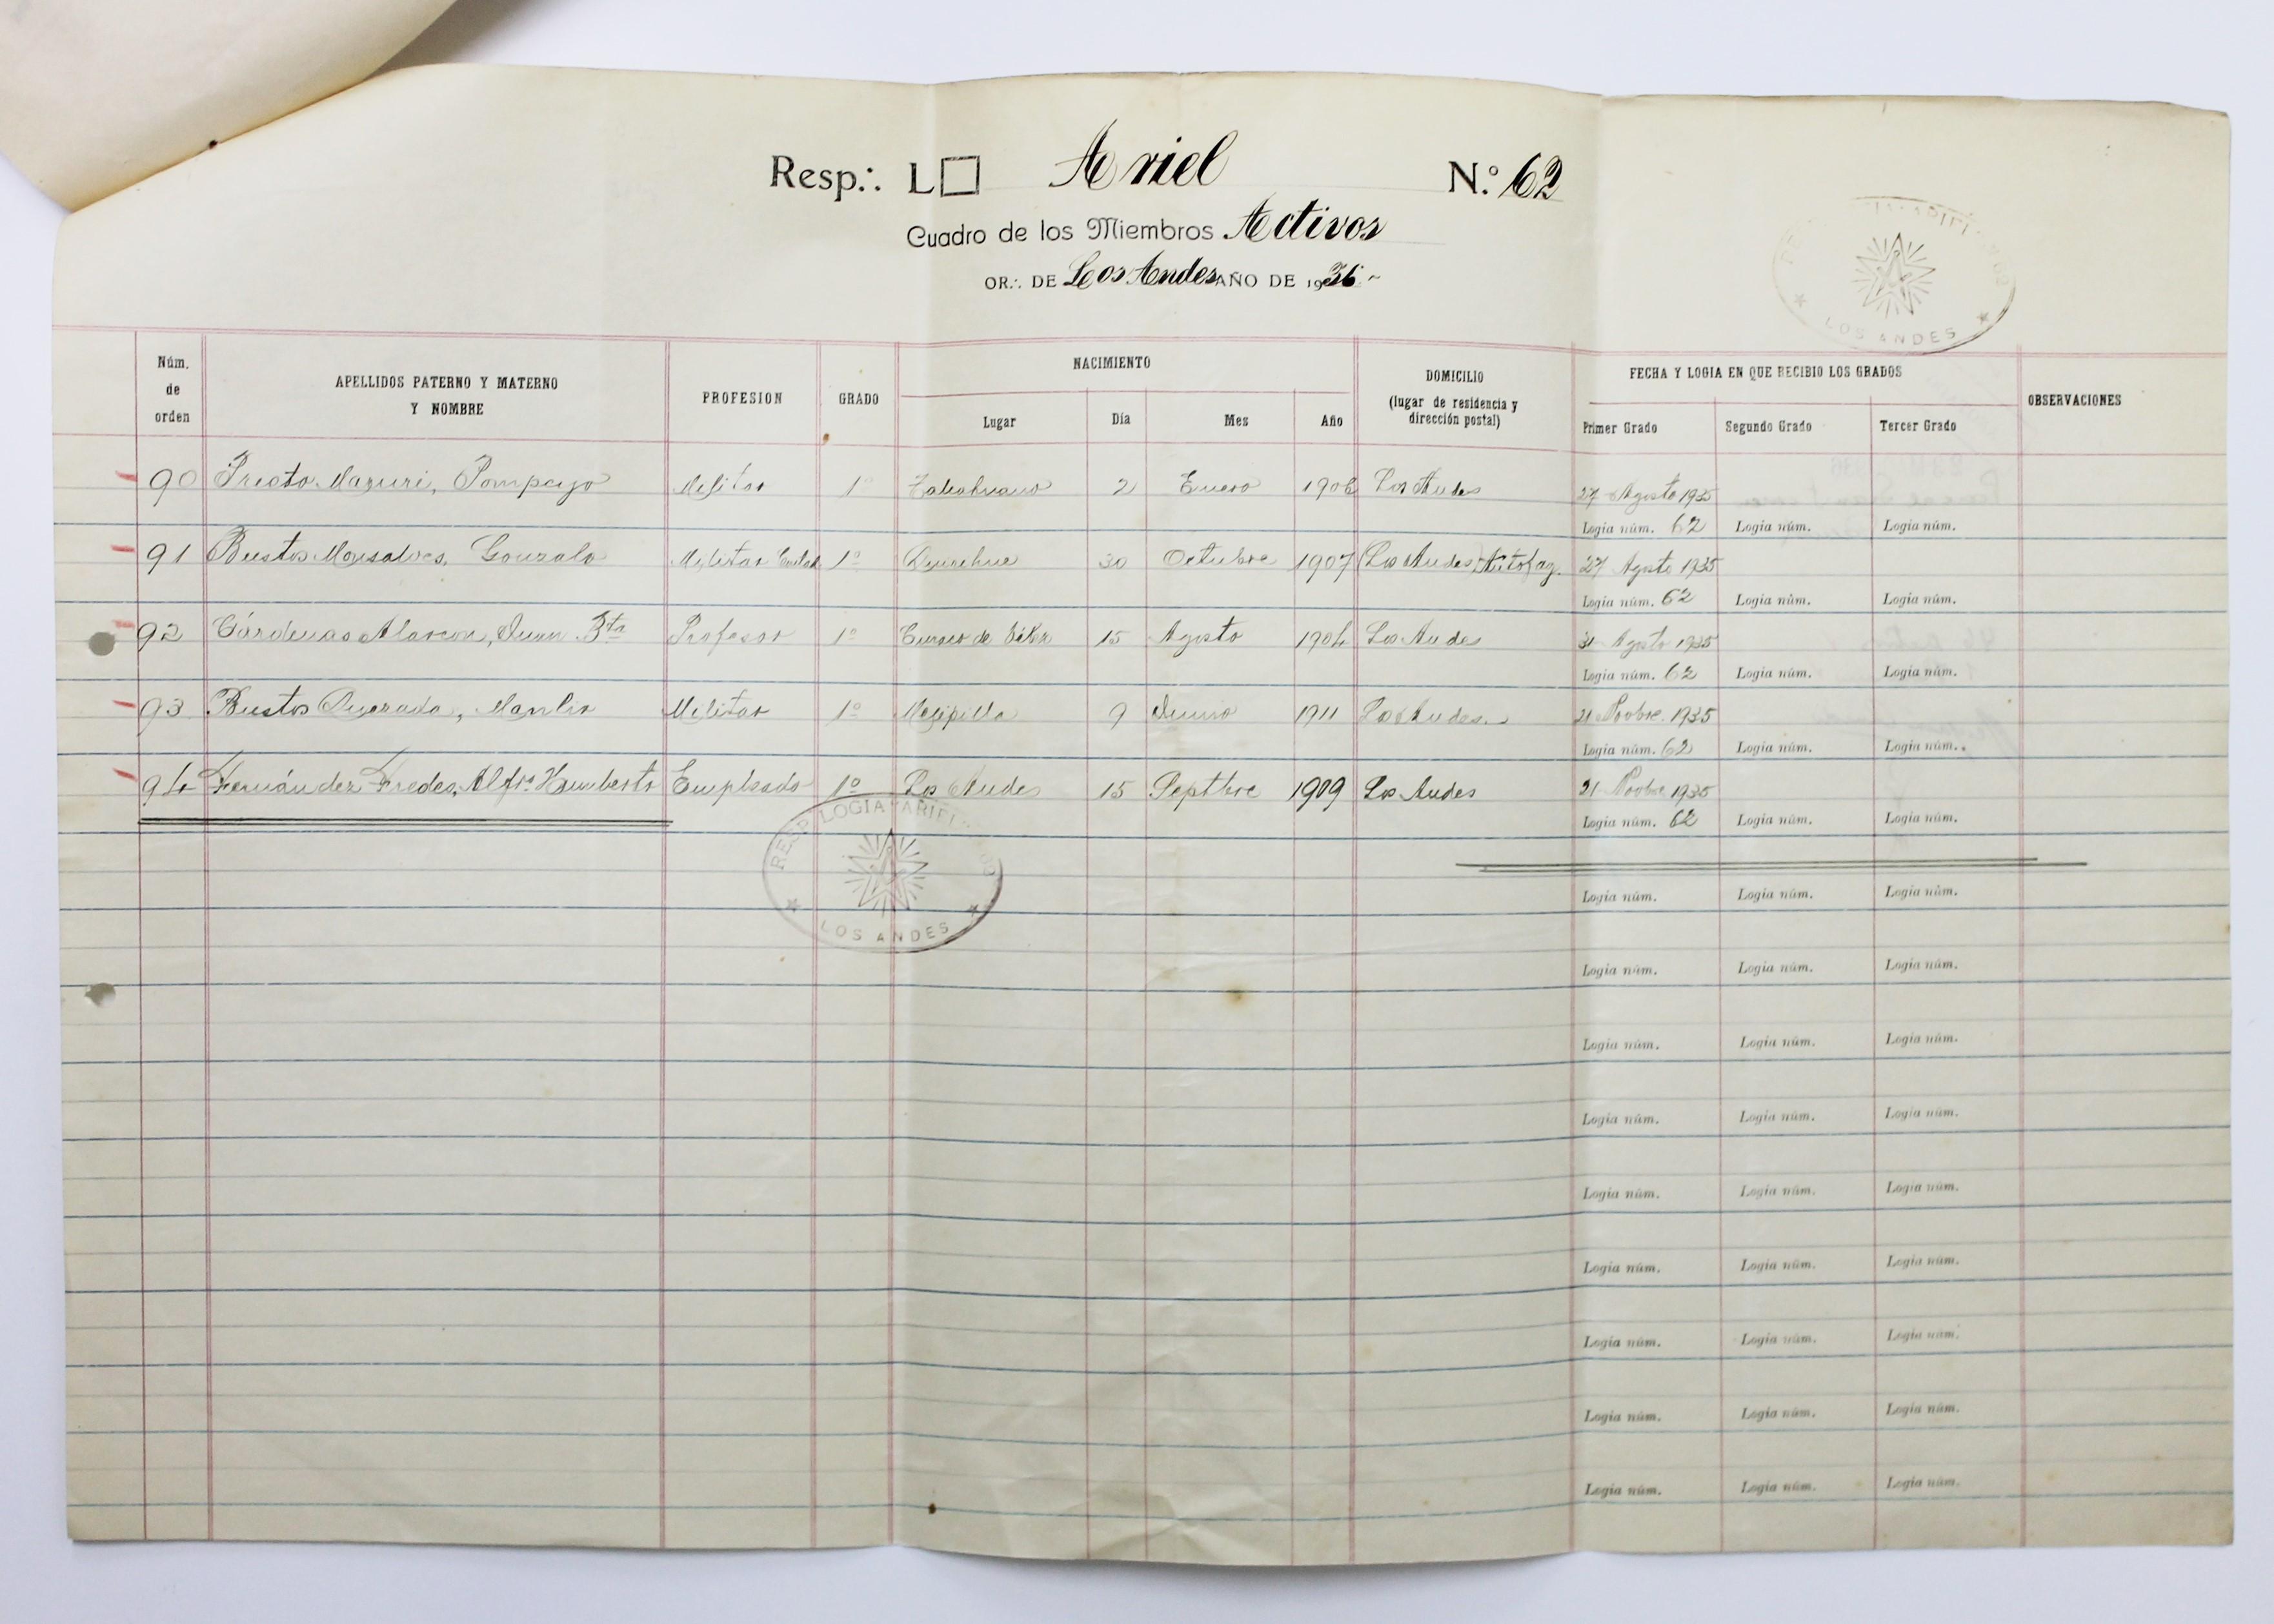 Resp.·. L□ Ariel N.º 62
Cuadro de los Miembros Activos
OR.·. DE Los Andes AÑO DE 1936.-
LOS ANDES
Núm. de orden
APELLIDOS PATERNO Y MATERNO Y NOMBRE
PROFESION
GRADO
NACIMIENTO
Lugar Día Mes Año
DOMICILIO
(lugar de residencia y dirección postal)
FECHA Y LOGIA EN QUE RECIBIO LOS GRADOS
Primer Grado Segundo Grado Tercer Grado
OBSERVACIONES
90 Pompeyo Militar 1º Talcahuano 2 Enero Los Andes 27 Agosto 1935
Logia núm. 62 Logia núm. Logia núm.
91 Bustos Monsalves, Gonzalo Militar 1º Quirihue 30 Octubre 1907 (Los Andes) Antofag. 27 Agosto 1935
Logia núm. 62 Logia núm. Logia núm.
92 Cárdenas Alarcon, Juan Bta Profesor 1º 15 Agosto 1904 Los Andes 31 Agosto 1935
Logia núm. 62 Logia núm. Logia núm.
93 Bustos Quezada, Manlio Militar 1º Melipilla 9 Junio 1911 Los Andes 21 Novbre. 1935
Logia núm. 62 Logia núm. Logia núm.
94 Fernández Fredes, Alfº Humberto Empleado 1º Los Andes 15 Septbre 1909 Los Andes 21 Novbre 1935
Logia núm. 62 Logia núm. Logia núm.
RESP LOGIA ARIEL
LOS ANDES
Logia núm. Logia núm. Logia núm.
Logia núm. Logia núm. Logia núm.
Logia núm. Logia núm. Logia núm.
Logia núm. Logia núm. Logia núm.
Logia núm. Logia núm. Logia núm.
Logia núm. Logia núm. Logia núm.
Logia núm. Logia núm. Logia núm.
Logia núm. Logia núm. Logia núm.
Logia núm. Logia núm. Logia núm.